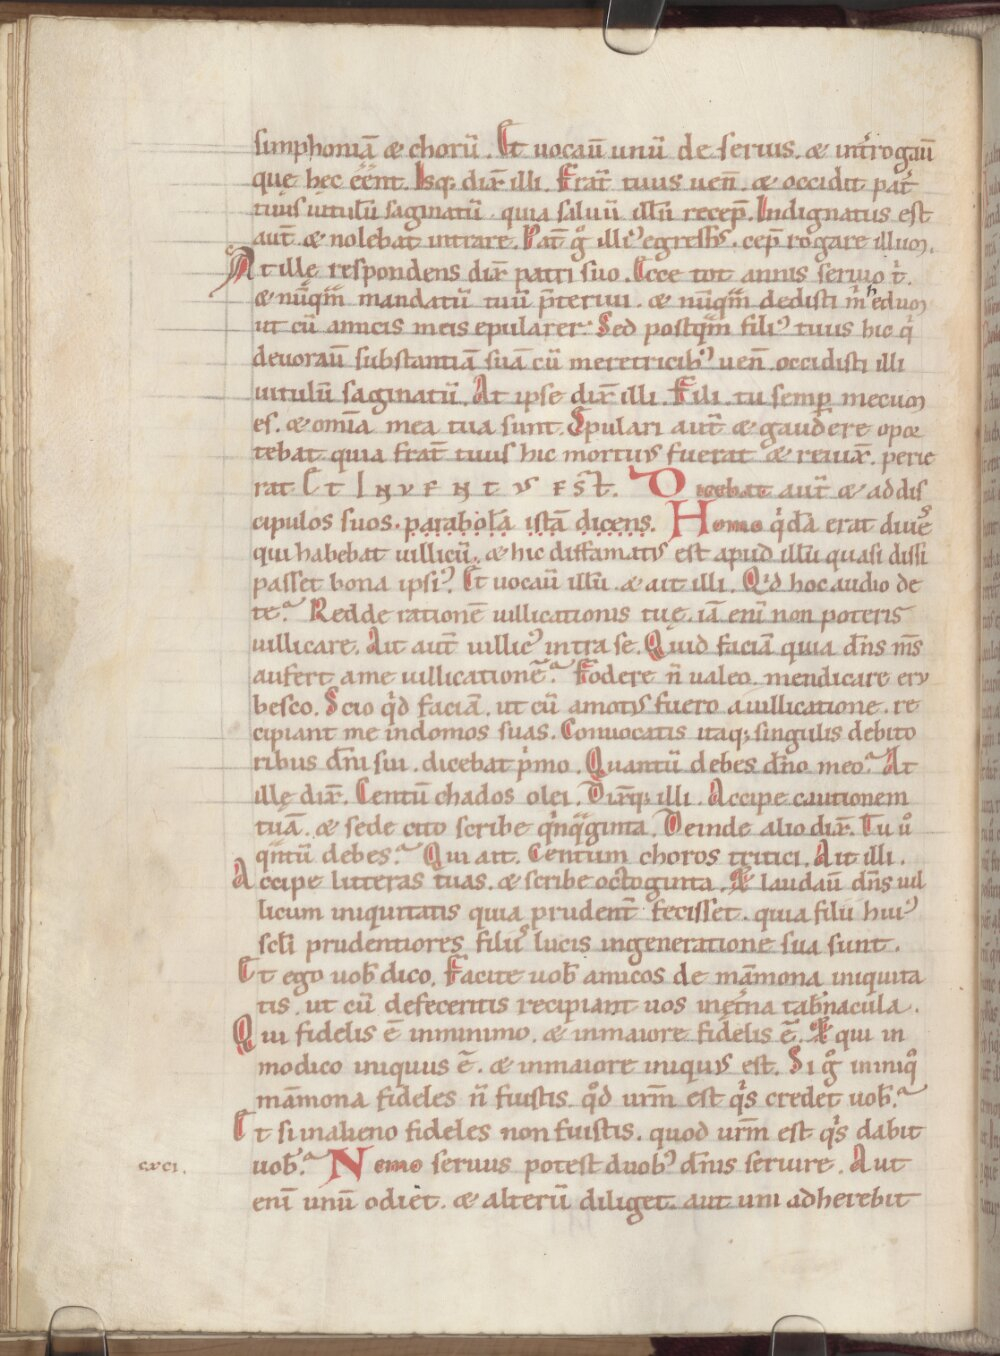 simphoniā & chorū. Et uocau̅ unū de seruis. & int̅rogau̅
que hec ee̅nt. Isq; dix̅ illi. Frat̅ tuus uen̅. & occidit pat̅
tuus uitulu̅ saginatu̅. quia saluu̅ illu̅ recep̅. Indignatus est
aut̅. & nolebat intrare. Pat̅ gͦ illiꝰ egressꝰ. cep̅ rogare illum.
At ille respondens dix̅ patri suo. Ecce tot annis seruio t̅.
& nu̅qᵃm mandatu̅ tuu̅ p̅teriui. & nu̅qᵃm dedisti m̅ hedum
ut cu̅ amicis meis epularer. Sed postqᵃm filiꝰ tuus hic q̅
deuorau̅ substantiā suā cu̅ meretricibꝰ uen̅. occidisti illi
uitulu̅ saginatu̅. At ipse dix̅ illi. Fili. tu semp̅ mecum
es. & om̅ia mea tua sunt. Epulari aut̅ & gaudere opor
tebat quia frat̅ tuus hic mortuus fuerat & reuix̅. perie
rat Et INVENTUS EST. Dicebat aut̅ & ad dis
cipulos suos. parabolā istā dicens. Homo qͥdā erat diues
qui habebat uillicu̅. & hic diffamatus est apud illu̅ quasi dissi
passet bona ipsiꝰ. Et uocau̅ illu̅ & ait illi. Qͥd hoc audio de
te? Redde ratione̅ uillicationis tuę. iā eni̅ non poteris
uillicare. Ait aut̅ uillicꝰ intra se. Quid faciā quia dn̅s m̅s
aufert a me uillicatione̅? Fodere n̅ ualeo. mendicare eru
besco. Scio qͥd faciā. ut cu̅ amotus fuero a uillicatione. re
cipiant me in domos suas. Conuocatis itaq; singulis debito
ribus dn̅i sui. dicebat pͥmo. Quantu̅ debes dn̅o meo? At
ille dix̅. Centu̅ chados olei. Dix̅q; illi. Accipe cautionem
tuā. & sede cito scribe qͥnqᵃginta. Deinde alio dix̅. Tu uͦ
qᵃntu̅ debes? Qui ait. Centum choros tritici. Ait illi.
Accipe litteras tuas. & scribe octoginta. & laudau̅ dn̅s uil
licum iniquitatis quia prudent̅ fecisset. quia filii huiꝰ
scl̅i prudentiores filiis lucis in generatione sua sunt.
Et ego uob̅ dico. Facite uob̅ amicos de mām̅ona iniquita
tis. ut cu̅ defeceritis recipiant uos in ęt̅na tab̅nacula.
Qui fidelis ē in minimo. & in maiore fidelis ē. & qui in
modico iniquus ē. & in maiore iniquus est. Si gͦ in iniqͦ
mām̅ona fideles n̅ fuistis. qͦd urm̅ est qͥs credet uob̅?
Et si in alieno fideles non fuistis. quod urm̅ est qͥs dabit
cxci. uob̅? Nemo seruus potest duobꝰ dn̅is seruire. Aut
eni̅ unu̅ odiet. & alteru̅ diliget. aut uni adherebit